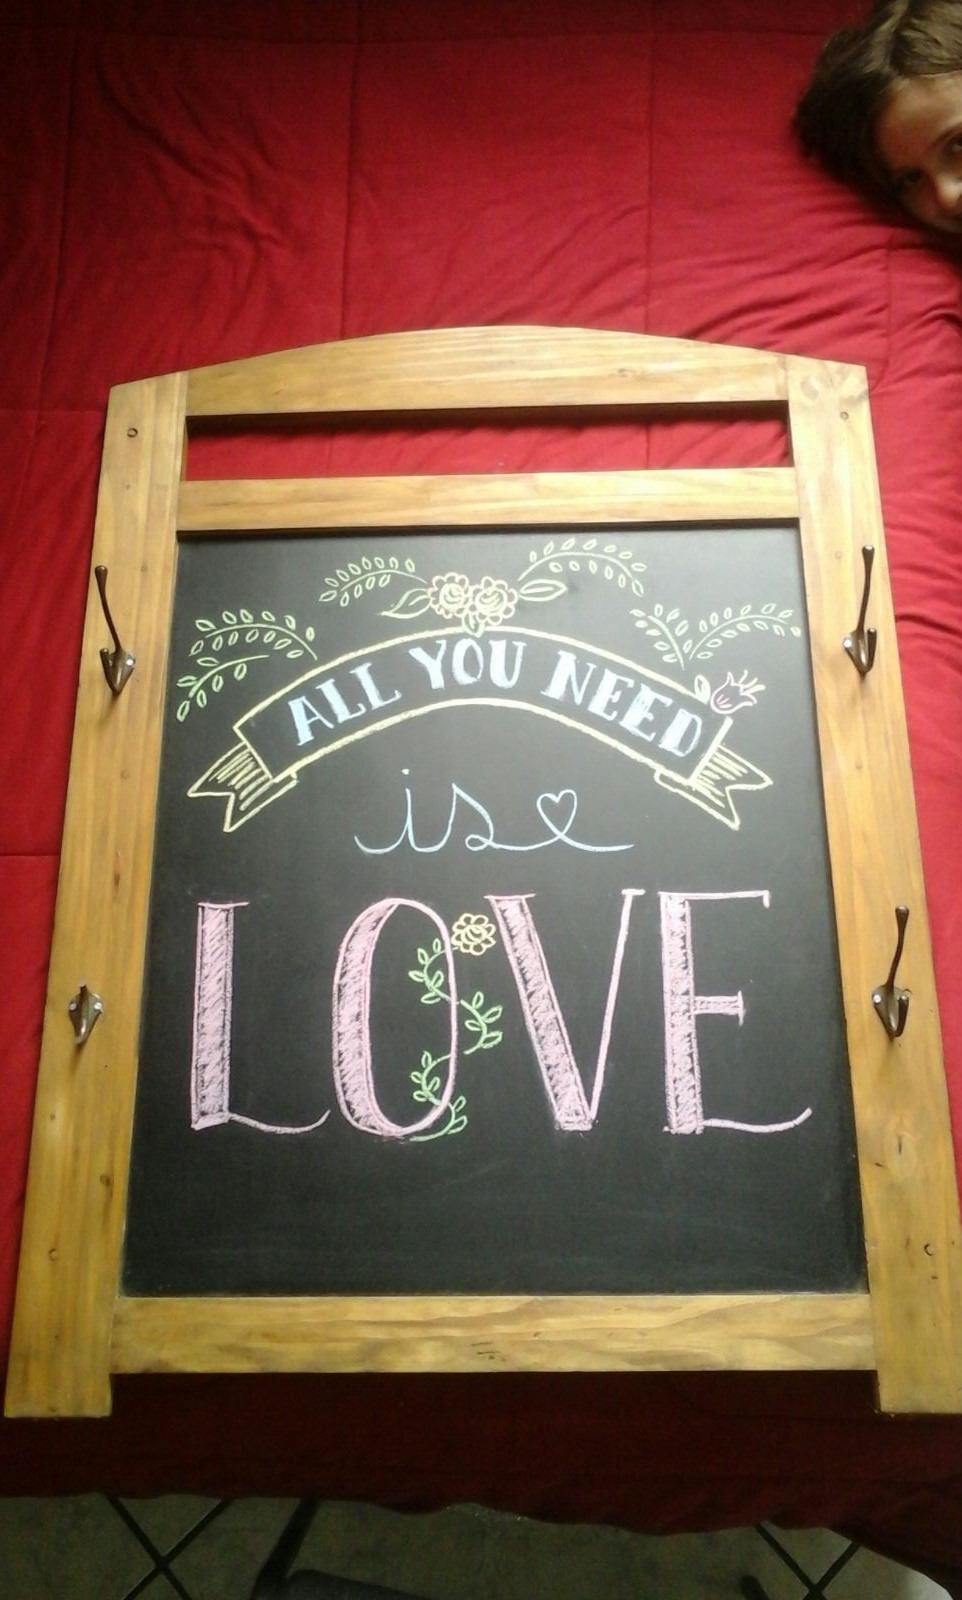 ALL YOU NEED
is
LOVE